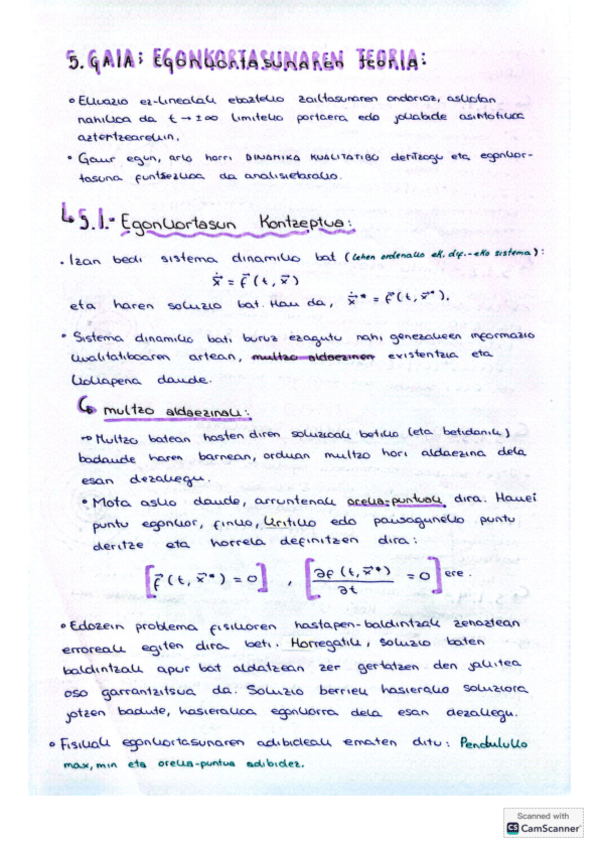 5. GAIA: EGONKORTASUNAREN TEORIA:
• Ekuazio ez-linealak ebazteko zailtasunaren ondorioz, askotan
nahikoa da t → ±∞ limiteko portaera edo jokabide asintotikoa
aztertzearekin.
• Gaur egun, arlo horri DINAMIKA KUALITATIBO deritzogu eta egonkor-
tasuna funtsezkoa da analisietarako.
↳ 5.1.- Egonkortasun Kontzeptua:
• Izan bedi sistema dinamiko bat (lehen ordenako ek. dif.-eko sistema):
ẋ⃗ = f⃗(t, x⃗)
eta haren soluzio bat. Hau da, ẋ⃗* = f⃗(t, x⃗*).
• Sistema dinamiko bati buruz ezagutu nahi genezakeen informazio
kualitatiboaren artean, multzo aldaezinen existentzia eta
kokapena daude.
↳ multzo aldaezinak:
→ Multzo batean hasten diren soluzioak betiko (eta betidanik)
badaude haren barnean, orduan multzo hori aldaezina dela
esan dezakegu.
• Mota asko daude, arruntenak oreka-puntuak dira. Hauei
puntu egonkor, finko, kritiko edo pausaguneko puntu
deritze eta horrela definitzen dira:
[f⃗(t, x⃗*) = 0] , [∂f(t, x⃗*)/∂t = 0] ere.
• Edozein problema fisikoren hastapen-baldintzak zehaztean
erroreak egiten dira beti. Horregatik, soluzio baten
baldintzak apur bat aldatzean zer gertatzen den jakitea
oso garrantzitsua da. Soluzio berriek hasierako soluziora
jotzen badute, hasierakoa egonkorra dela esan dezakegu.
• Fisikak egonkortasunaren adibideak ematen ditu: Penduluko
max, min eta oreka-puntua adibidez.
Scanned with
CS CamScanner